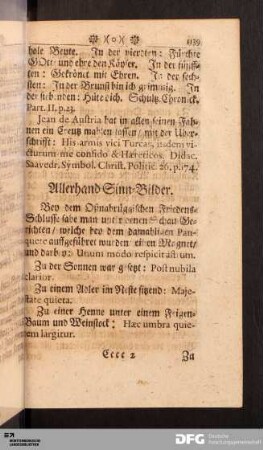 1139
hole Beute. In der vierdten: Fürchte
GOtt und ehre den König. In der fünff-
ten: Gekrönet mit Ehren. In der sechs-
sten: In der Brunst bin ich grimmig. In
der siebenden: Hüte dich. Schultz. Chronick.
Part. II. p. 23.
Jean de Austria hat in allen seinen Fah-
nen ein Creutz mahlen lassen, mit der Uber-
schrifft: His armis vici Turcas, iisdem vi-
cturum me confido & Hæreticos. Didac.
Saavedr. Symbol. Christ. Politic. 26. p. 174.
Allerhand Sinn-Bilder.
Bey dem Oßnabrüggischen Friedens-
Schlusse sahe man unter denen Schau-Ge-
richten, welche bey dem damahligen Pan-
quete auffgeführet wurden einen Magnet,
und darbey: Unum modo respicit astrum.
Zu der Sonnen war gesetzt: Post nubila
clarior.
Zu einem Adler im Neste sitzend: Maje-
state quieta.
Zu einer Henne unter einem Feigen-
Baum und Weinstock: Hæc umbra quie-
tem largitur.
Cccc 2 Zu
DFG Deutsche
Forschungsgemeinschaft